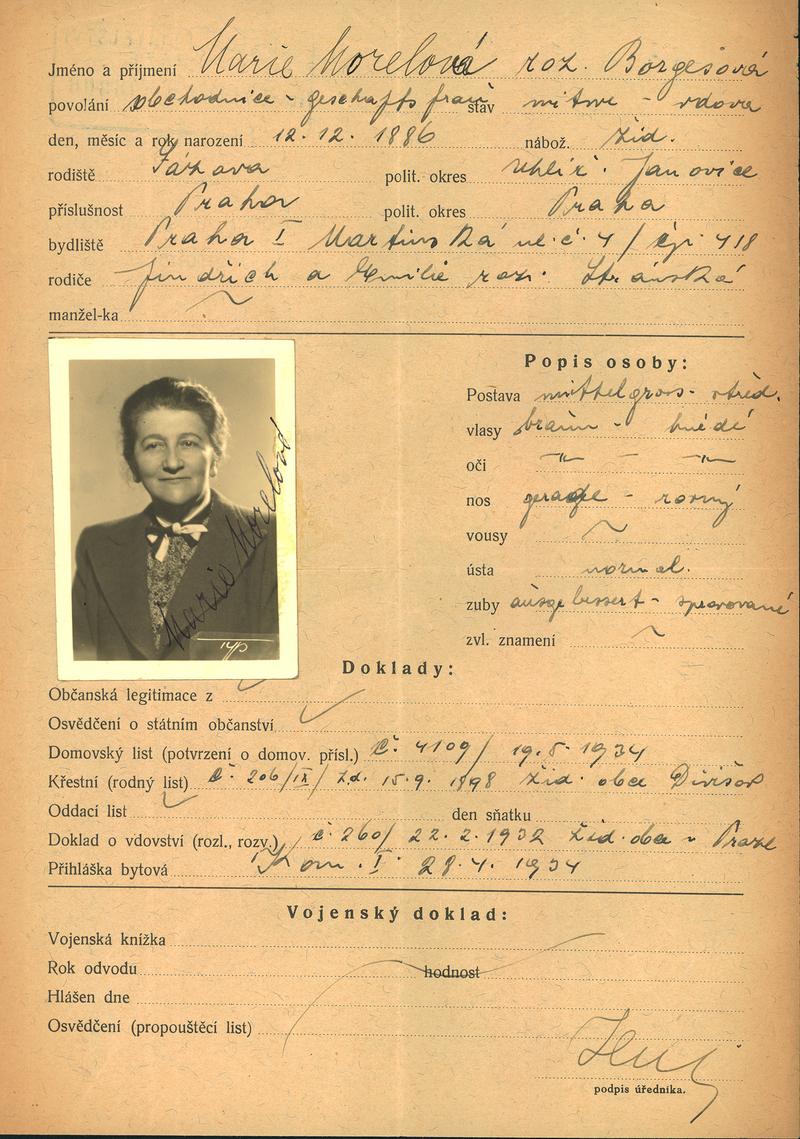 Jméno a příjmení Marie Morelová roz. Borgešová
povolání obchodnice - geschäftsfrau stav witwe - vdova
den, měsíc a rok narození 12.12.1886 nábož. žid.
rodiště polit. okres Uhlíř. Janovice
příslušnost Praha polit. okres Praha
bydliště Praha I Martinská ul. č. 4 / čp. 418
rodiče Jindřich a Emilie roz. Stránská
manžel-ka
Popis osoby:
Postava mittelgross - střed.
vlasy braun - hnědé
oči -"- - -"-
nos gerade - rovný
vousy
ústa normal.
zuby ausgebessert - spravované
zvl. znamení
Marie Morelová
Doklady:
Občanská legitimace z
Osvědčení o státním občanství
Domovský list (potvrzení o domov. přísl.) č. 4109/ 19.5.1934
Křestní (rodný list) č. 206/IX/ 15.9.1898 žid. obec Divišov
Oddací list den sňatku
Doklad o vdovství (rozl., rozv.) č. 260/ 22.2.1932 žid. obec v Praze
Přihláška bytová Kom. I. 28.4.1934
Vojenský doklad:
Vojenská knížka
Rok odvodu hodnost
Hlášen dne
Osvědčení (propouštěcí list)
podpis úředníka.